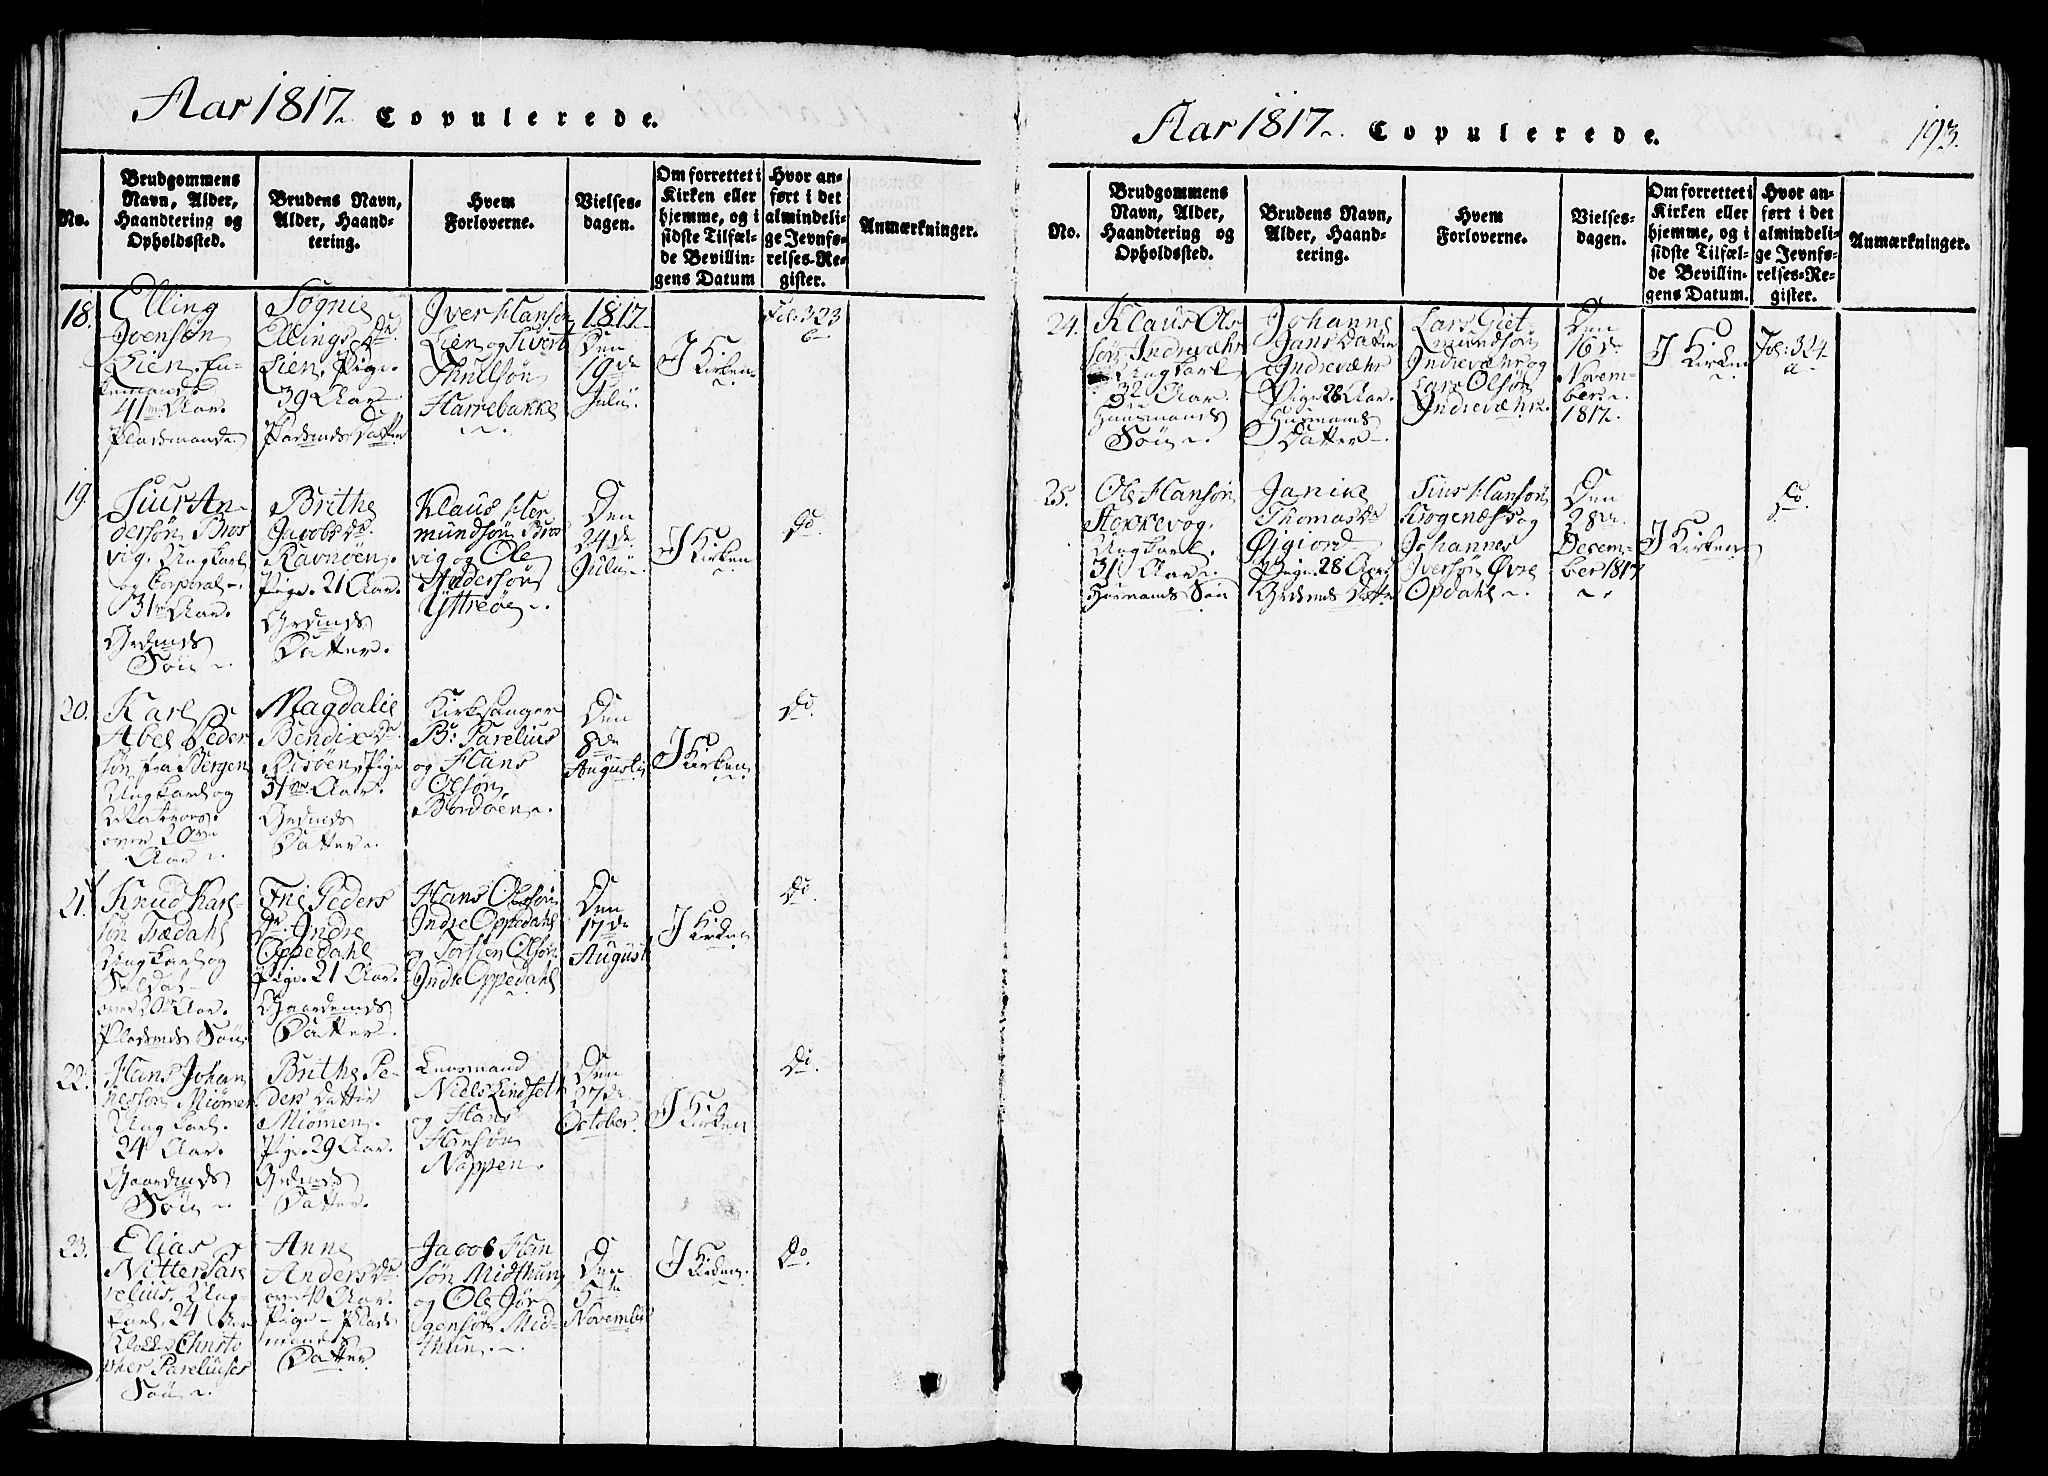 Aar 1817. Copulerede.
No.
Brudgommens
Navn, Alder,
Haandtering og
Opholdssted.
Brudens Navn,
Alder, Haand-
tering.
Hvem
Forloverne.
Vielses-
dagen.
Om forrettet i
Kirken eller
hjemme, og i
sidste Tilfæl-
de Bevillin-
gens Datum
Hvor an-
ført i det
almindeli-
ge Jevnfø-
relses-Re-
gister.
Anmærkninger.
18.
Elling
Ivensøn
Lien. En-
kemand
41 Aar.
Pladsmand
Søgnie
Ellings Dr.
Lien. Pige.
39 Aar
Pladsmds Datter
Iver Hansøn
Lien og Sivert
Harrebakke
1817.
Den
19de
Julii
I Kirken
Fol: 323
b
19.
Siur An-
dersøn Bros
vig. Ungkarl
og Corporal.
31 Aar.
Grdmds
Søn
Brithe
Jacobs Dr.
Ravnøen.
Pige. 21 Aar.
Grdmds
Datter.
Klaus Her
mundsøn Bros
vig og Ole
Andersøn
Yttreøe
Den
24de
Julii
I Kirken
Do.
20.
Karl
Abel Peder
søn fra Bergen
Ungkarl og
over 20
Aar
Magdalie
Bendix Dr.
Risøen. Pige
31 Aar.
Grdmds
Datter
Kirksanger
B: Parelius
og Hans
Olsøn
Bordøen
Den
8de
Augusti
I Kirken
Do.
21.
Knud Karl-
søn Trædahl
Ungkarl og
Soldat
over 30 Aar.
Pladsmds Søn
Peders
Dr. Indre
Oppedahl
Pige. 21 Aar.
Gaardmds
Datter.
Hans Olssøn
Indre Oppedahl
og Torsten Olsøn
Indre Oppedahl
Den
17de
August
I Kirken
Do.
22.
Hans Johan
nessøn Miømen
Ungkarl.
24 Aar.
Gaardmds
Søn
Brithe Pe-
ders Datter
Miømen.
Pige. 29 Aar.
Grdmds
Datter.
Lensmand
Niels Lindseth
og Hans
Hansøn
Nøppen.
Den
27de
October.
I Kirken
Do.
23.
Elias
Nitter Pare
relius. Ung-
karl. 24 Aar
Klokker Christo
pher Pareliuses
Søn
Anne
Anders Dr.
over 40 Aar.
Pige - Plads
mands
Datter
Jacob Han
søn Midthun
og Ole Jør
gensøn Mid-
thun.
Den
5te
November
I Kirken.
Do.
Aar 1817. Copulerede.
193.
No.
Brudgommens
Navn, Alder,
Haandtering og
Opholdssted.
Brudens Navn,
Alder, Haand-
tering.
Hvem
Forloverne.
Vielses-
dagen.
Om forrettet i
Kirken eller
hjemme, og i
sidste Tilfæl-
de Bevillin-
gens Datum.
Hvor an-
ført i det
almindeli-
ge Jevnfø-
relses-Re-
gister.
Anmærkninger.
24.
Klaus Ols
søn Indrevæhr
Ungkarl
32 Aar.
Huusmands
Søn
Johanne
Jans Datter
Indrevæhr
Pige 28 Aar.
Husmands
Datter
Lars Giet
mundsøn
Indrevæhr og
Lars Olsøn
Indrevæhr.
Den
16de
Novem-
ber.
1817.
I Kirken
Fol: 324
a
25.
Ole Hansøn
Stokkevog.
Ungkarl.
31 Aar.
Huusmands Søn
Janike
Thomas Dr
Øigiord
Pige. 28 Aar
Grdmds Datter
Siur Hansøn
Krogenæs og
Johannes
Iversøn Øvre
Opdahl
Den
28de
Decem-
ber 1817
I Kirken
Do